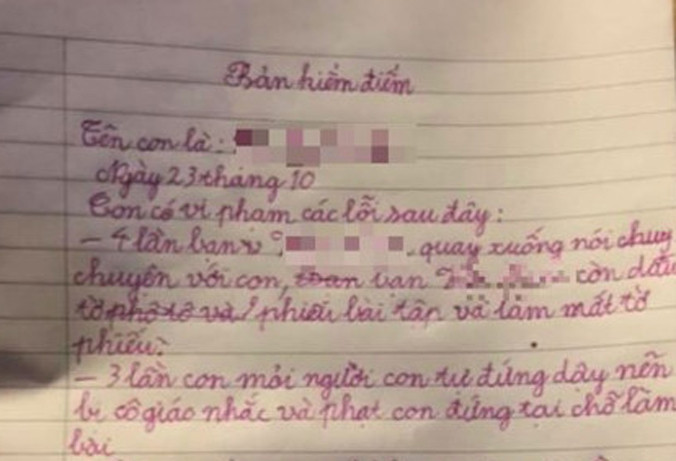 Bản kiểm điểm
Tên con là:
Ngày 23 tháng 10
Con có vi phạm các lỗi sau đây:
- 4 lần bạn quay xuống nói chuy
chuyện với con, bạn còn dấu
tờ phô tô và 1 phiếu bài tập và làm mất tờ
phiếu.
- 3 lần con mỏi người con tự đứng dậy nên
bị cô giáo nhắc và phạt con đứng tại chỗ làm
bài